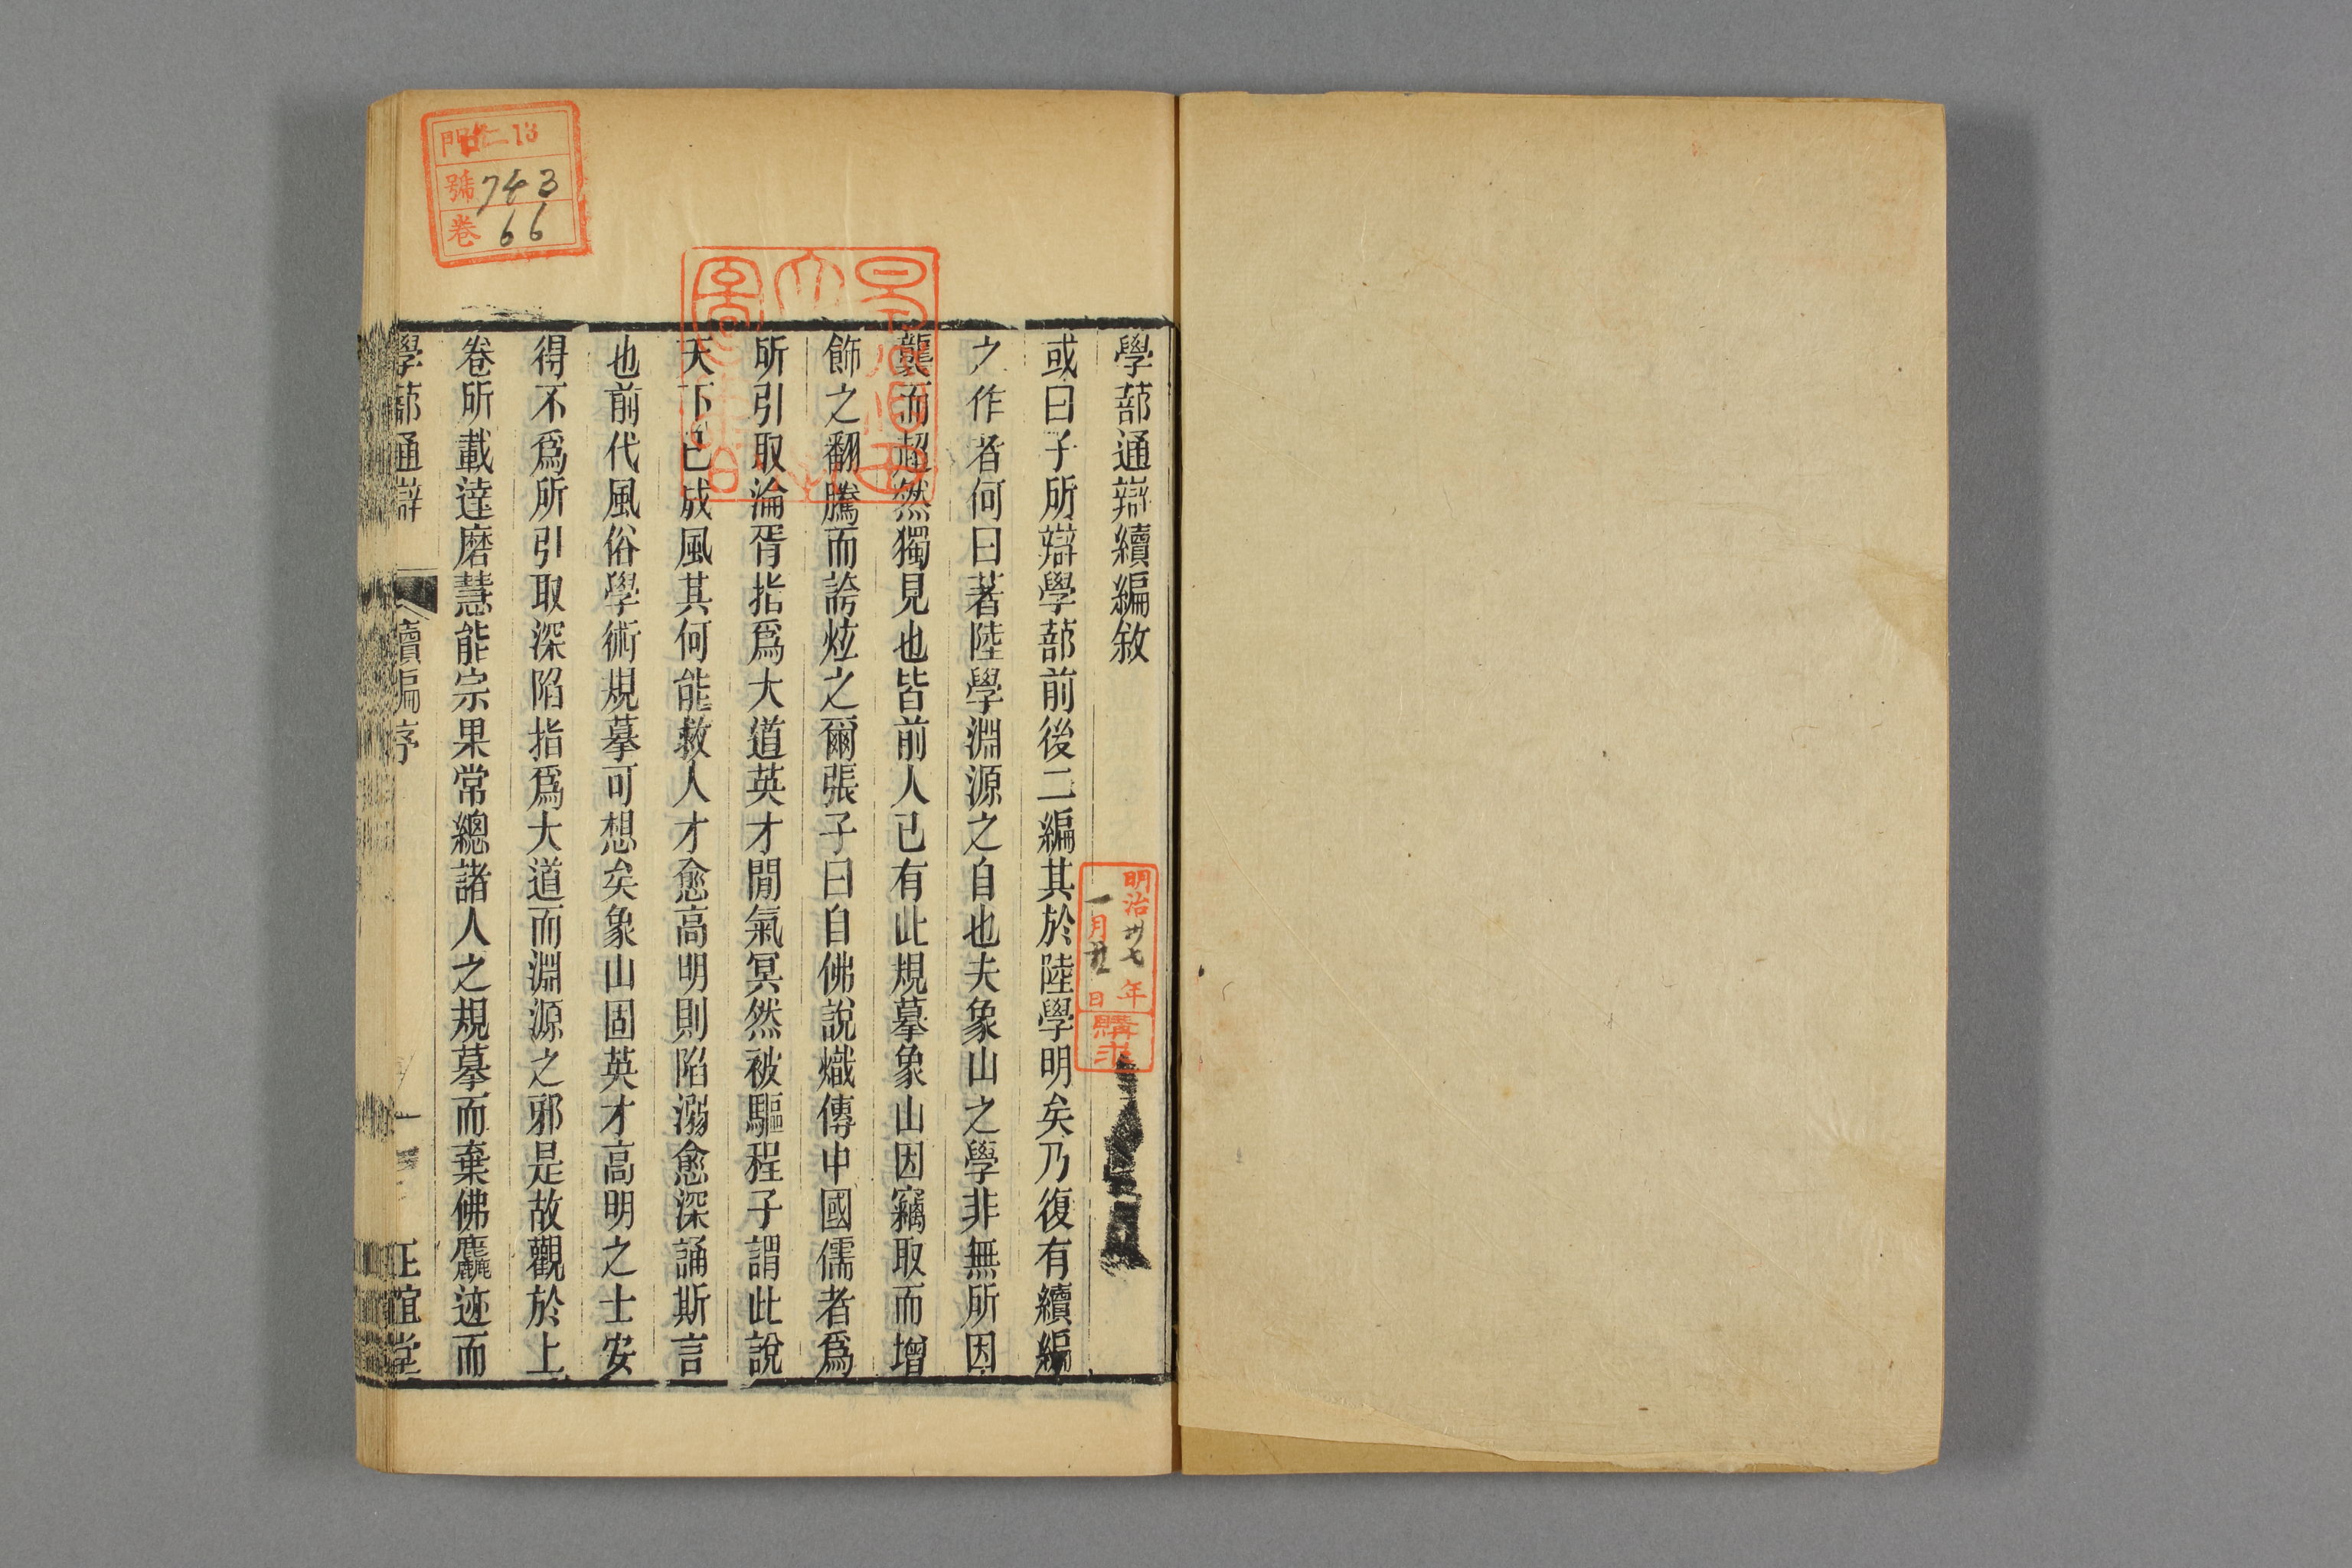 學蔀通辯續編敘
或曰子所辯學蔀前後二編其於陸學明矣乃復有續編
之作者何曰著陸學淵源之自也夫象山之學非無所因
襲而超然獨見也皆前人已有此規摹象山因竊取而增
飾之翻騰而誇炫之爾張子曰自佛說熾傳中國儒者爲
所引取淪胥指爲大道英才閒氣冥然被驅程子謂此說
天下已成風其何能救人才愈高明則陷溺愈深誦斯言
也前代風俗學術規摹可想矣象山固英才高明之士安
得不爲所引取深陷指爲大道而淵源之邪是故觀於上
卷所載達磨慧能宗杲常總諸人之規摹而棄佛麤迹而
學蔀通辯
續編序
一
正誼堂
明治卅七年
一月廿日
購求
門 仁13
號 743
卷 66